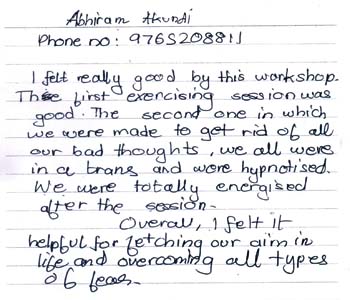 Abhiram Akundi
Phone no: 9765208811
I felt really good by this workshop.
These first exercising session was
good. The second one in which
we were made to get rid of all
our bad thoughts, we all were
in a trans and were hypnotised.
We were totally energised
after the session.
Overall, I felt it
helpful for fetching our aim in
life and overcoming all types
of fears.